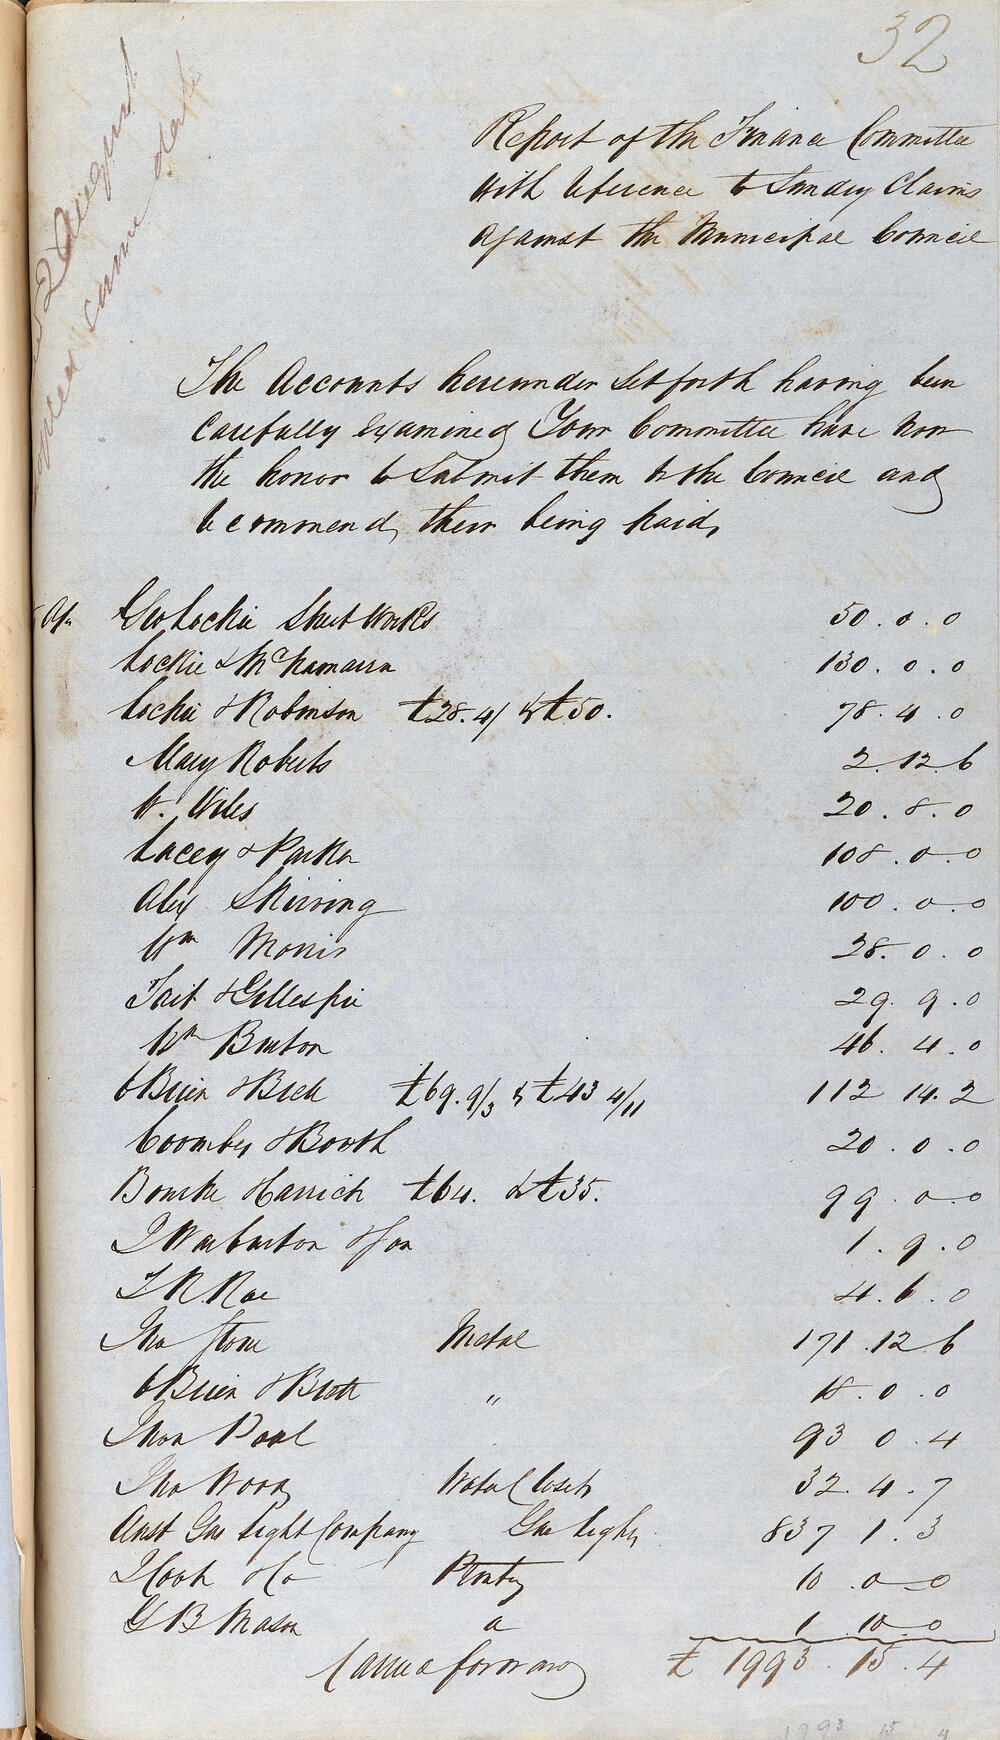 32
2 August
same date
Report of the Finance Committee
with reference to Sundry Claims
against the Municipal Council
The Accounts hereunder set forth having been
Carefully examined Your Committee have now
the honor to Submit them to the Council and
recommend their being paid,
Geo Lockie Street Works 50 . 0 . 0
Lockie & McNamara 130 . 0 . 0
Lockie & Robinson £28. 4/ & £50. 78 . 4 . 0
Mary Roberts 2 . 12 . 6
W. Wiles 20 . 8 . 0
Lacey & Parker 108 . 0 . 0
Alex Skirving 100 . 0 . 0
Wm Morris 28 . 0 . 0
Tait & Gillespie 29 . 9 . 0
Wm Burton 46 . 4 . 0
OBrien & Beck £69. 9/3 & £43 4/11 112 14 . 2
Coombes & Booth 20 . 0 . 0
Bourke & Carrick £64. & £35. 99 . 0 . 0
J Warburton & Son 1 . 9 . 0
T R Rae 4 . 6 . 0
Tho Stone Metal 171 . 12 6
OBrien & Brett " 18 . 0 . 0
Thos Paul 93 0 . 4
Tho Wood Water Closets 32 . 4 . 7
Aust Gas Light Company Gas Lights 837 1 . 3
J Cook & Co Printing 10 . 0 0
G B Mason a 1 10 0
Carried forward £ 1993 . 15 . 4
1993 15 4